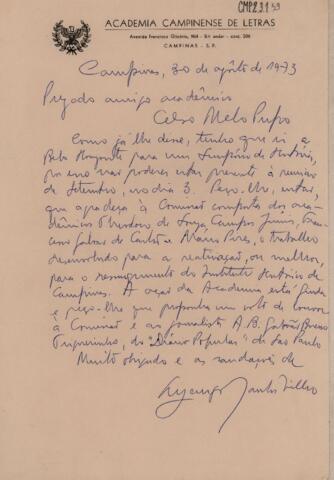 CMP 2.3.1.53
ACADEMIA CAMPINENSE DE LETRAS
Avenida Francisco Glicério, 964 - 8.º andar - conj. 206
CAMPINAS - S. P.
Campinas, 30 de agôsto de 1973
Prezado amigo acadêmico
Celso Mello Pupo
Como já lhe disse, tenho que ir a
Belo Horizonte para um Simpósio de História,
por isso não poderei estar presente à reunião
de Setembro, no dia 3. Peço-lhe, então,
que agradeça à Comissão composta dos aca-
dêmicos Theodoro de Souza Campos Júnior, Fran-
cisco de e Mário Pires, o trabalho
desenvolvido para a reativação, ou melhor,
para o ressurgimento do Instituto Histórico de
Campinas. A ação da Academia está finda
e peço-lhe que proponha um voto de louvor
à Comissão e ao jornalista A. B.
do "Diário Popular" de São Paulo
Muito obrigado e as saudações de
Lycurgo Santos Filho